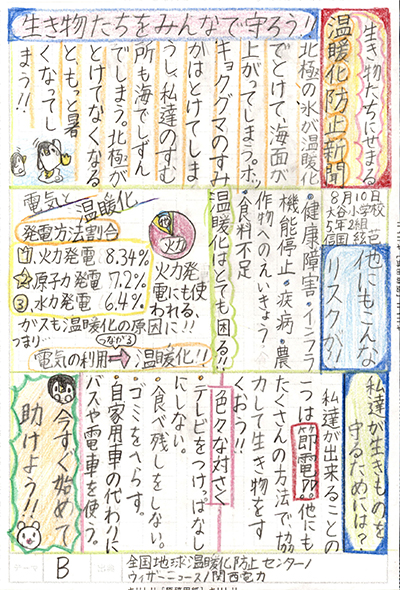 生き物たちをみんなで守ろう!!
生き物たちにせまる
温暖化防止新聞
北極の氷が温暖化
でとけて、海面が
上がってしまう。ホッ
キョクグマのすみ
かはとけてしま
うし、私達のすむ
所も海でしずん
でしまう。北極が
とけてなくなる
と、もっと暑
くなってし
まう!!
8月10日
大谷小学校
5年2組
他にもこんな
リスクが!!
・健康障害・イライラ
機能停止・疾病・農
作物へのえいきょう
・食料不足
温暖化はとても困る!!
電気と温暖化
発電方法割合
1、火力発電 8.34%
2、原子力発電 7.2%
3、水力発電 6.4%
火力
火力発
電にも使
われる、
ガスも温暖化の原因に!!
つまり…
つながる
電気の利用→温暖化!!
私達が生きものを
守るためには?
私達が出来ることの
一つは節電。他にも
たくさんの方法で協
力して生き物をす
くおう!!
色々な対さく
・テレビをつけっぱなし
にしない。
・食べ残しをしない。
・ゴミをへらす。
・自家用車の代わりに
バスや電車を使う。
今すぐ始めて
助けよう!!
テーマ B
出典 全国地球温暖化防止センター/
ウィザーニュース/関西電力